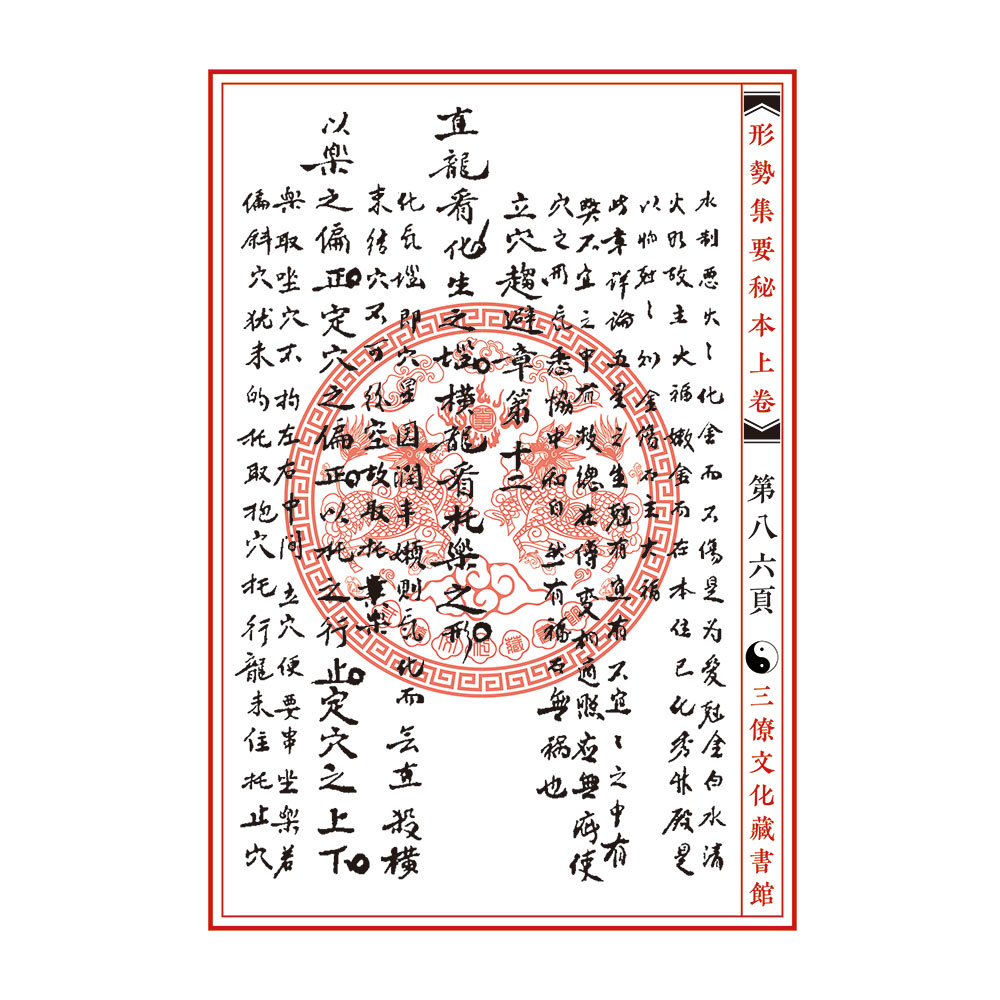 形勢集要秘本上卷
第八六頁
三僚文化藏書館
水制惡火〻化金而不傷是为爱尅金白水清
火形故主大福嫩金而在本位已化秀升殿是
以物尅〻則金傷不主大福
此章详论五星之生尅有宜有不宜〻之中有
獘不宜之中有救總在傳变相適照应無疵使
穴之形气悉協中和自然有福而無禍也
立穴趨避章第十三
直龍看化生之堖橫龍看托樂之形
化气堖即穴星圆潤丰嫩則气化而无直殺橫
来结穴不可後空故取托樂
以樂之偏正定穴之偏正以托之行止定穴之上下
樂取坐穴不拘左右中间立穴便要串坐樂若
偏斜穴犹未的托取抱穴托行龍未住托止穴